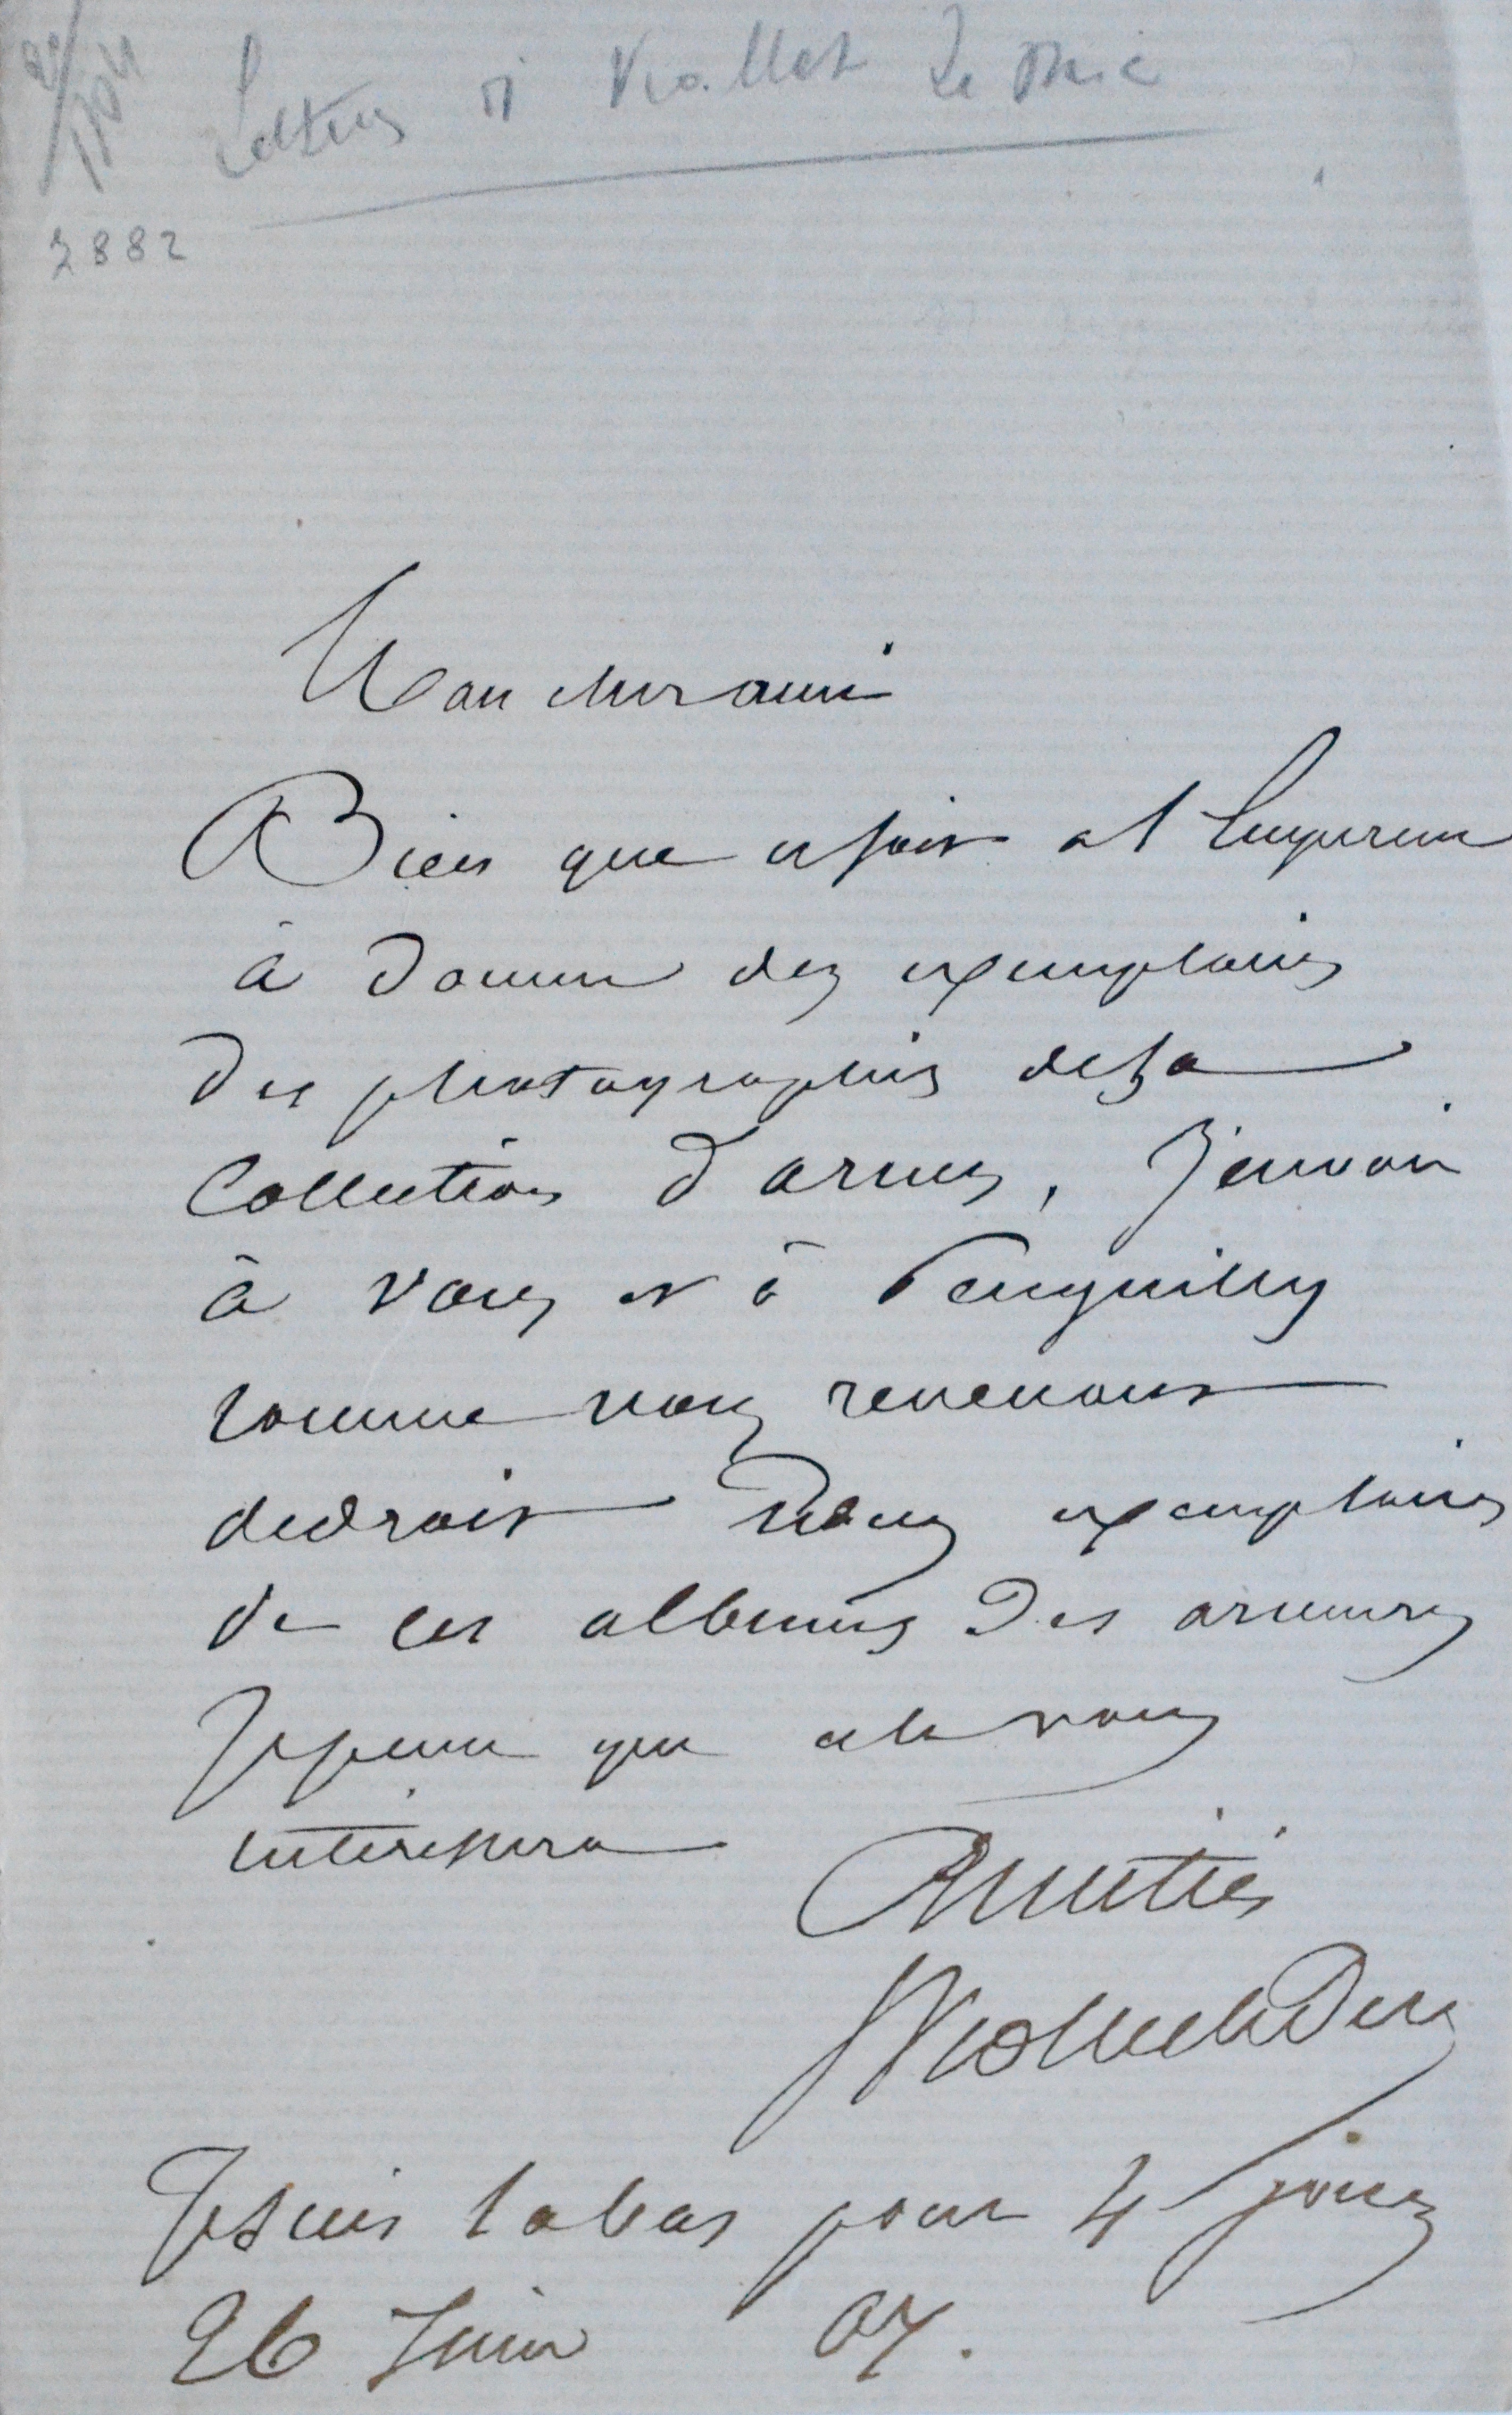 Lettres Viollet Le Duc
2882
Mon cher ami
Bien que ce soit a l Empereur
à donner des exemplaires
des photographies de sa
Collection d'armes, J'envoie
à vous et à Penguilly
comme vous revenant
de droit deux exemplaires
de ces albums des armures
Je pense que cela vous
interessera
Amitiés
Viollet Le Duc
Je suis labas pour 4 jours
26 Juin 67.